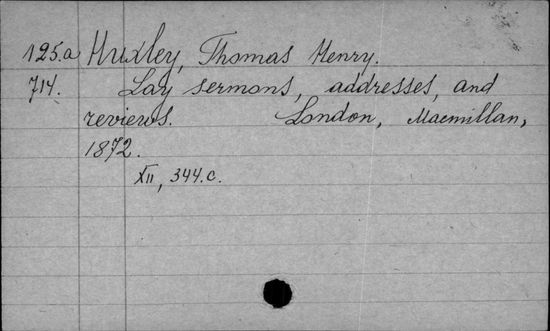 125.a Huxley, Thomas Henry.
714. Lay sermons, addresses, and
reviews. London, Macmillan,
1872.
XII, 344.c.